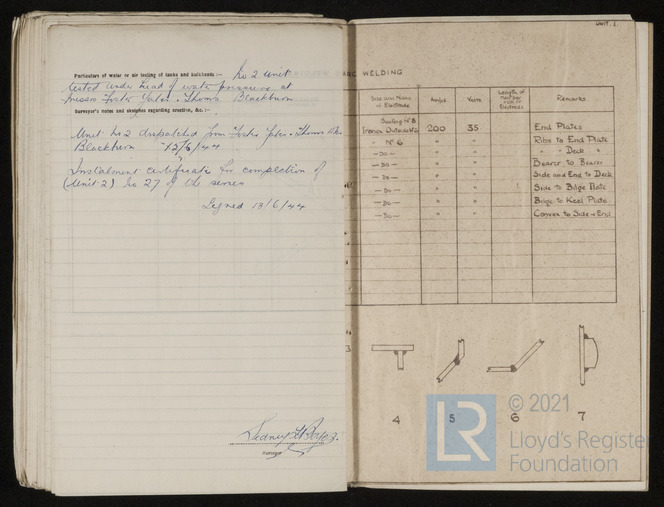 Particulars of water or air testing of tanks and bulkheads :— No 2 Unit
tested under head of water pressure at
Messrs Foster Yates & Thoms Blackburn
Surveyor's notes and sketches regarding erection, &c. :—
Unit No 2 dispatched from Foster Yates & Thoms
Blackburn 12/6/44
Instalment certificate for completion of
(Unit 2) No 27 of the series
Signed 13/6/44
Surveyor
UNIT. 1.
ARC WELDING
Size and Name of Electrode
Amps.
Volts
Length of run per
Electrode
Remarks
N° 8
200 35 End Plates
" N° 6 " " Ribs to End Plate
—Do— " " " " Deck "
—Do— " " Bearer to Bearer
—Do— " " Side and End to Deck
—Do— " " Side to Bilge Plate
—Do— " " Bilge to Keel Plate
—Do— " " Convex to Side & End
3
4 5 6 7
LR
© 2021
Lloyd's Register
Foundation